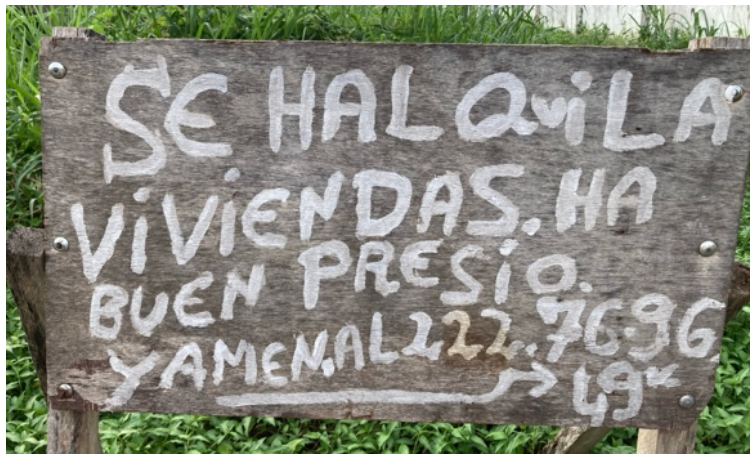 SE HALQuiLA
ViViENDAS. HA
BUEN PRESiO.
YAMEN,AL 222.7696
49